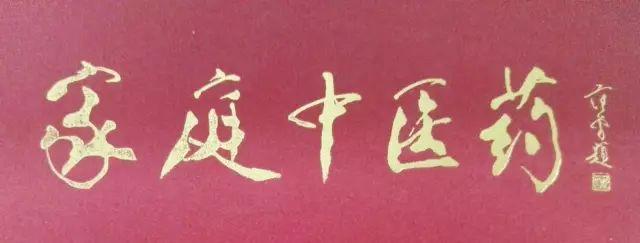 家庭中医药